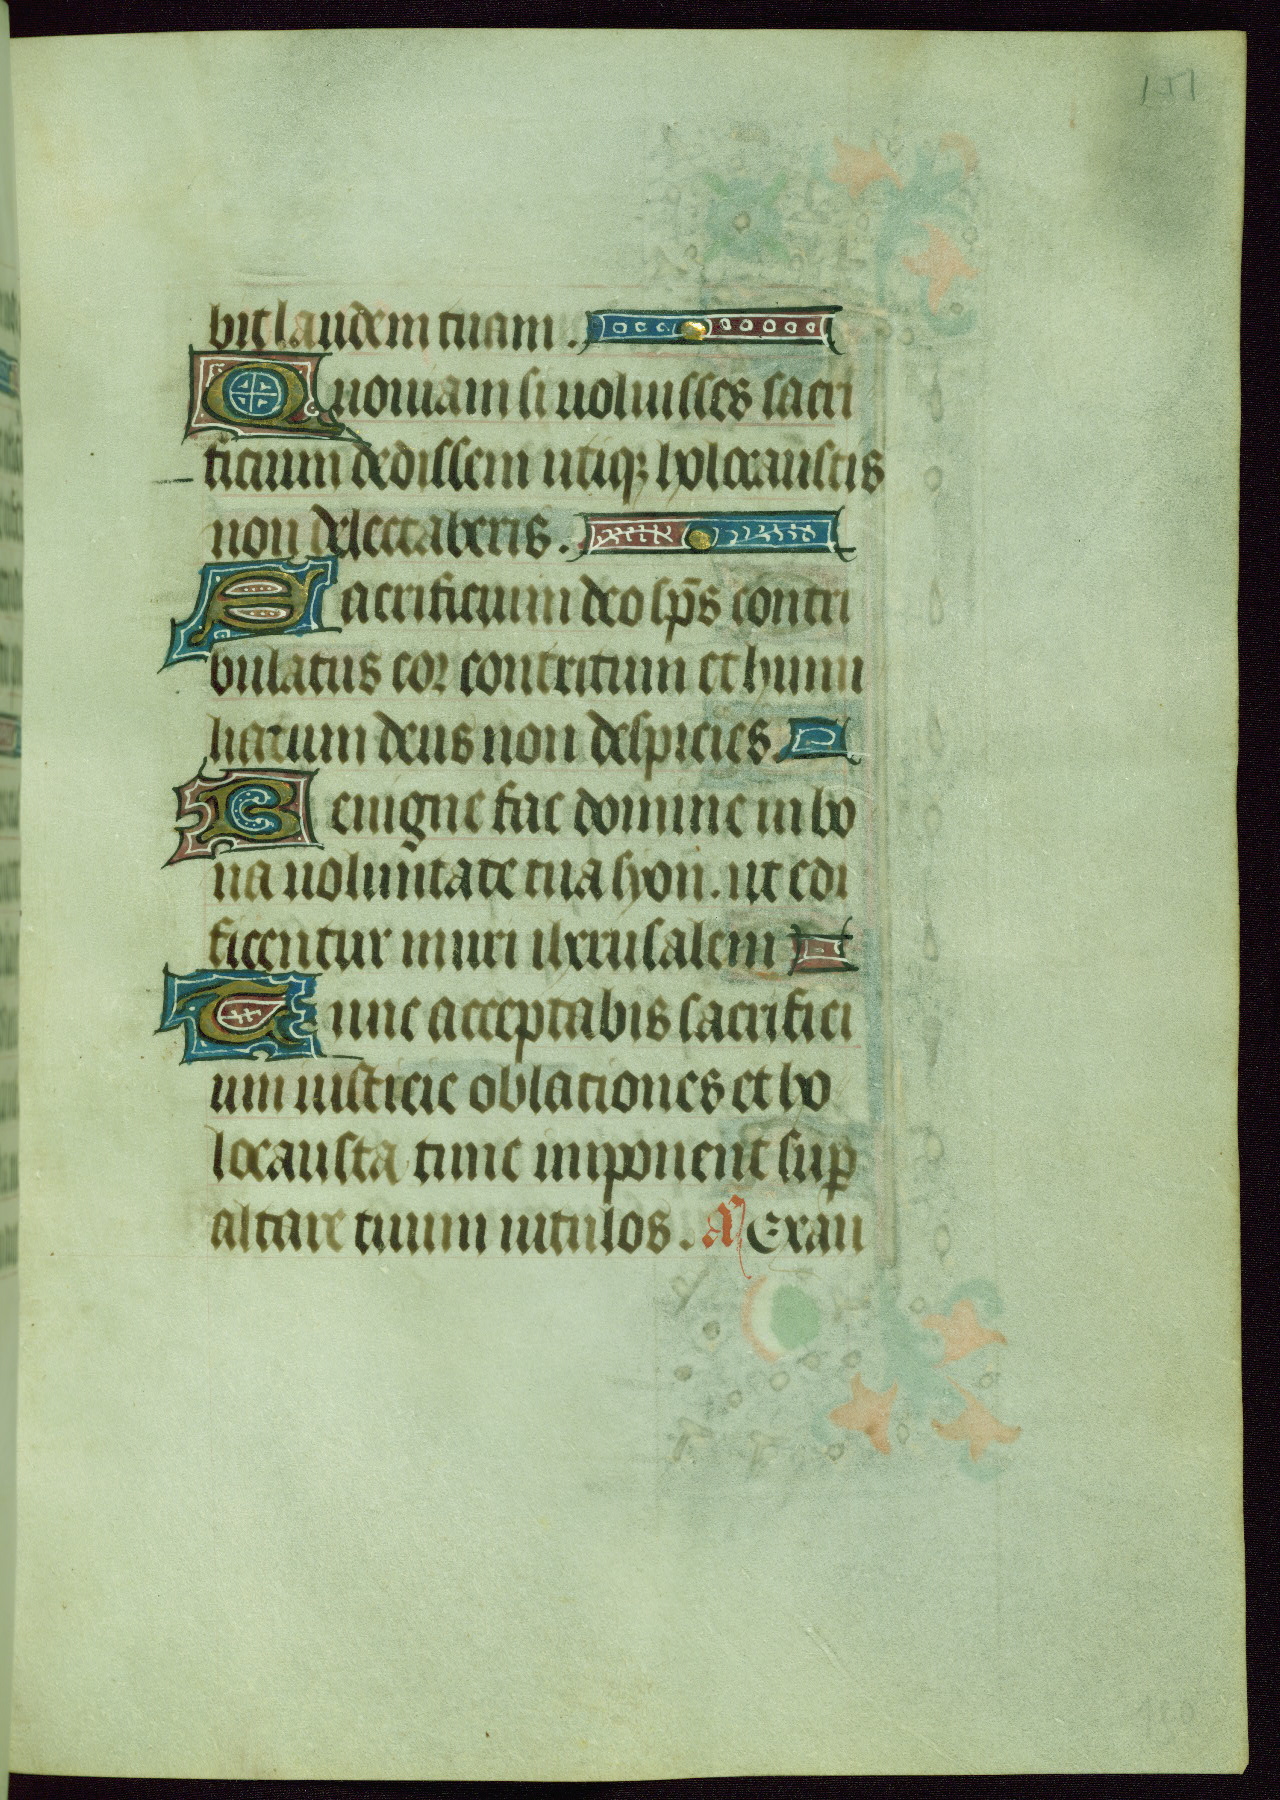 bit laudem tuam.
Quoniam si uoluisses sacri
ficium dedissem utiqꝫ holocaustis
non delectaberis.
Sacrificium deo sp̄s contri
bulatus cor contritum et humi
liatum deus non despicies.
Benigne fac domine in bo
na uoluntate tua syon. ut edi
ficentur muri iherusalem
Tunc acceptabis sacrifici
um iusticie oblationes et ho
locausta tunc imponent suꝑ
altare tuum uitulos. a Exau